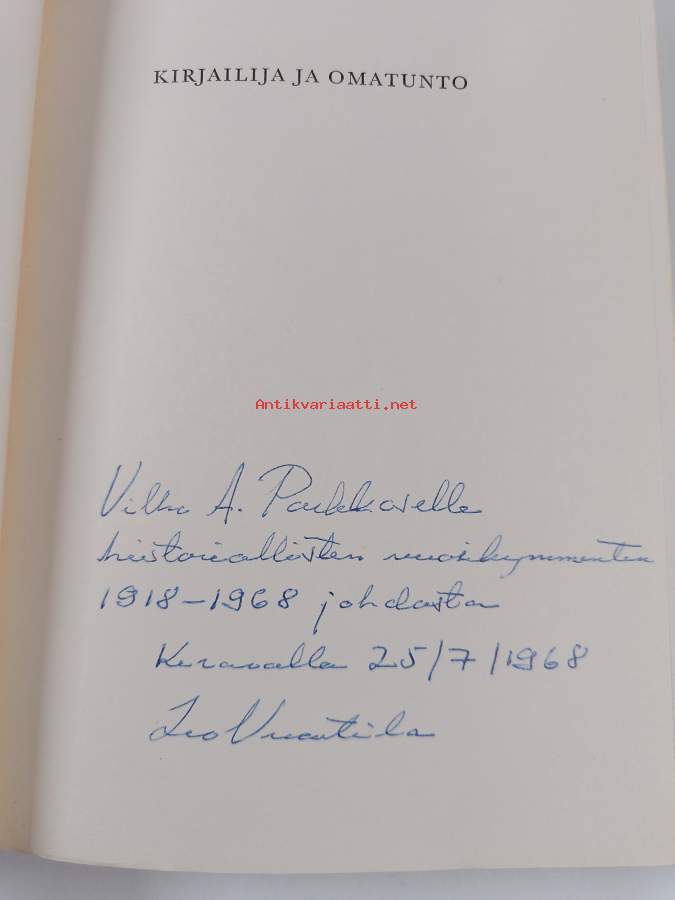 KIRJAILIJA JA OMATUNTO
Antikvariaatti.net
Vilho A.
historiallisten vuosikymmenten
1918-1968 johdosta
Keravalla 25/7/1968
Leo